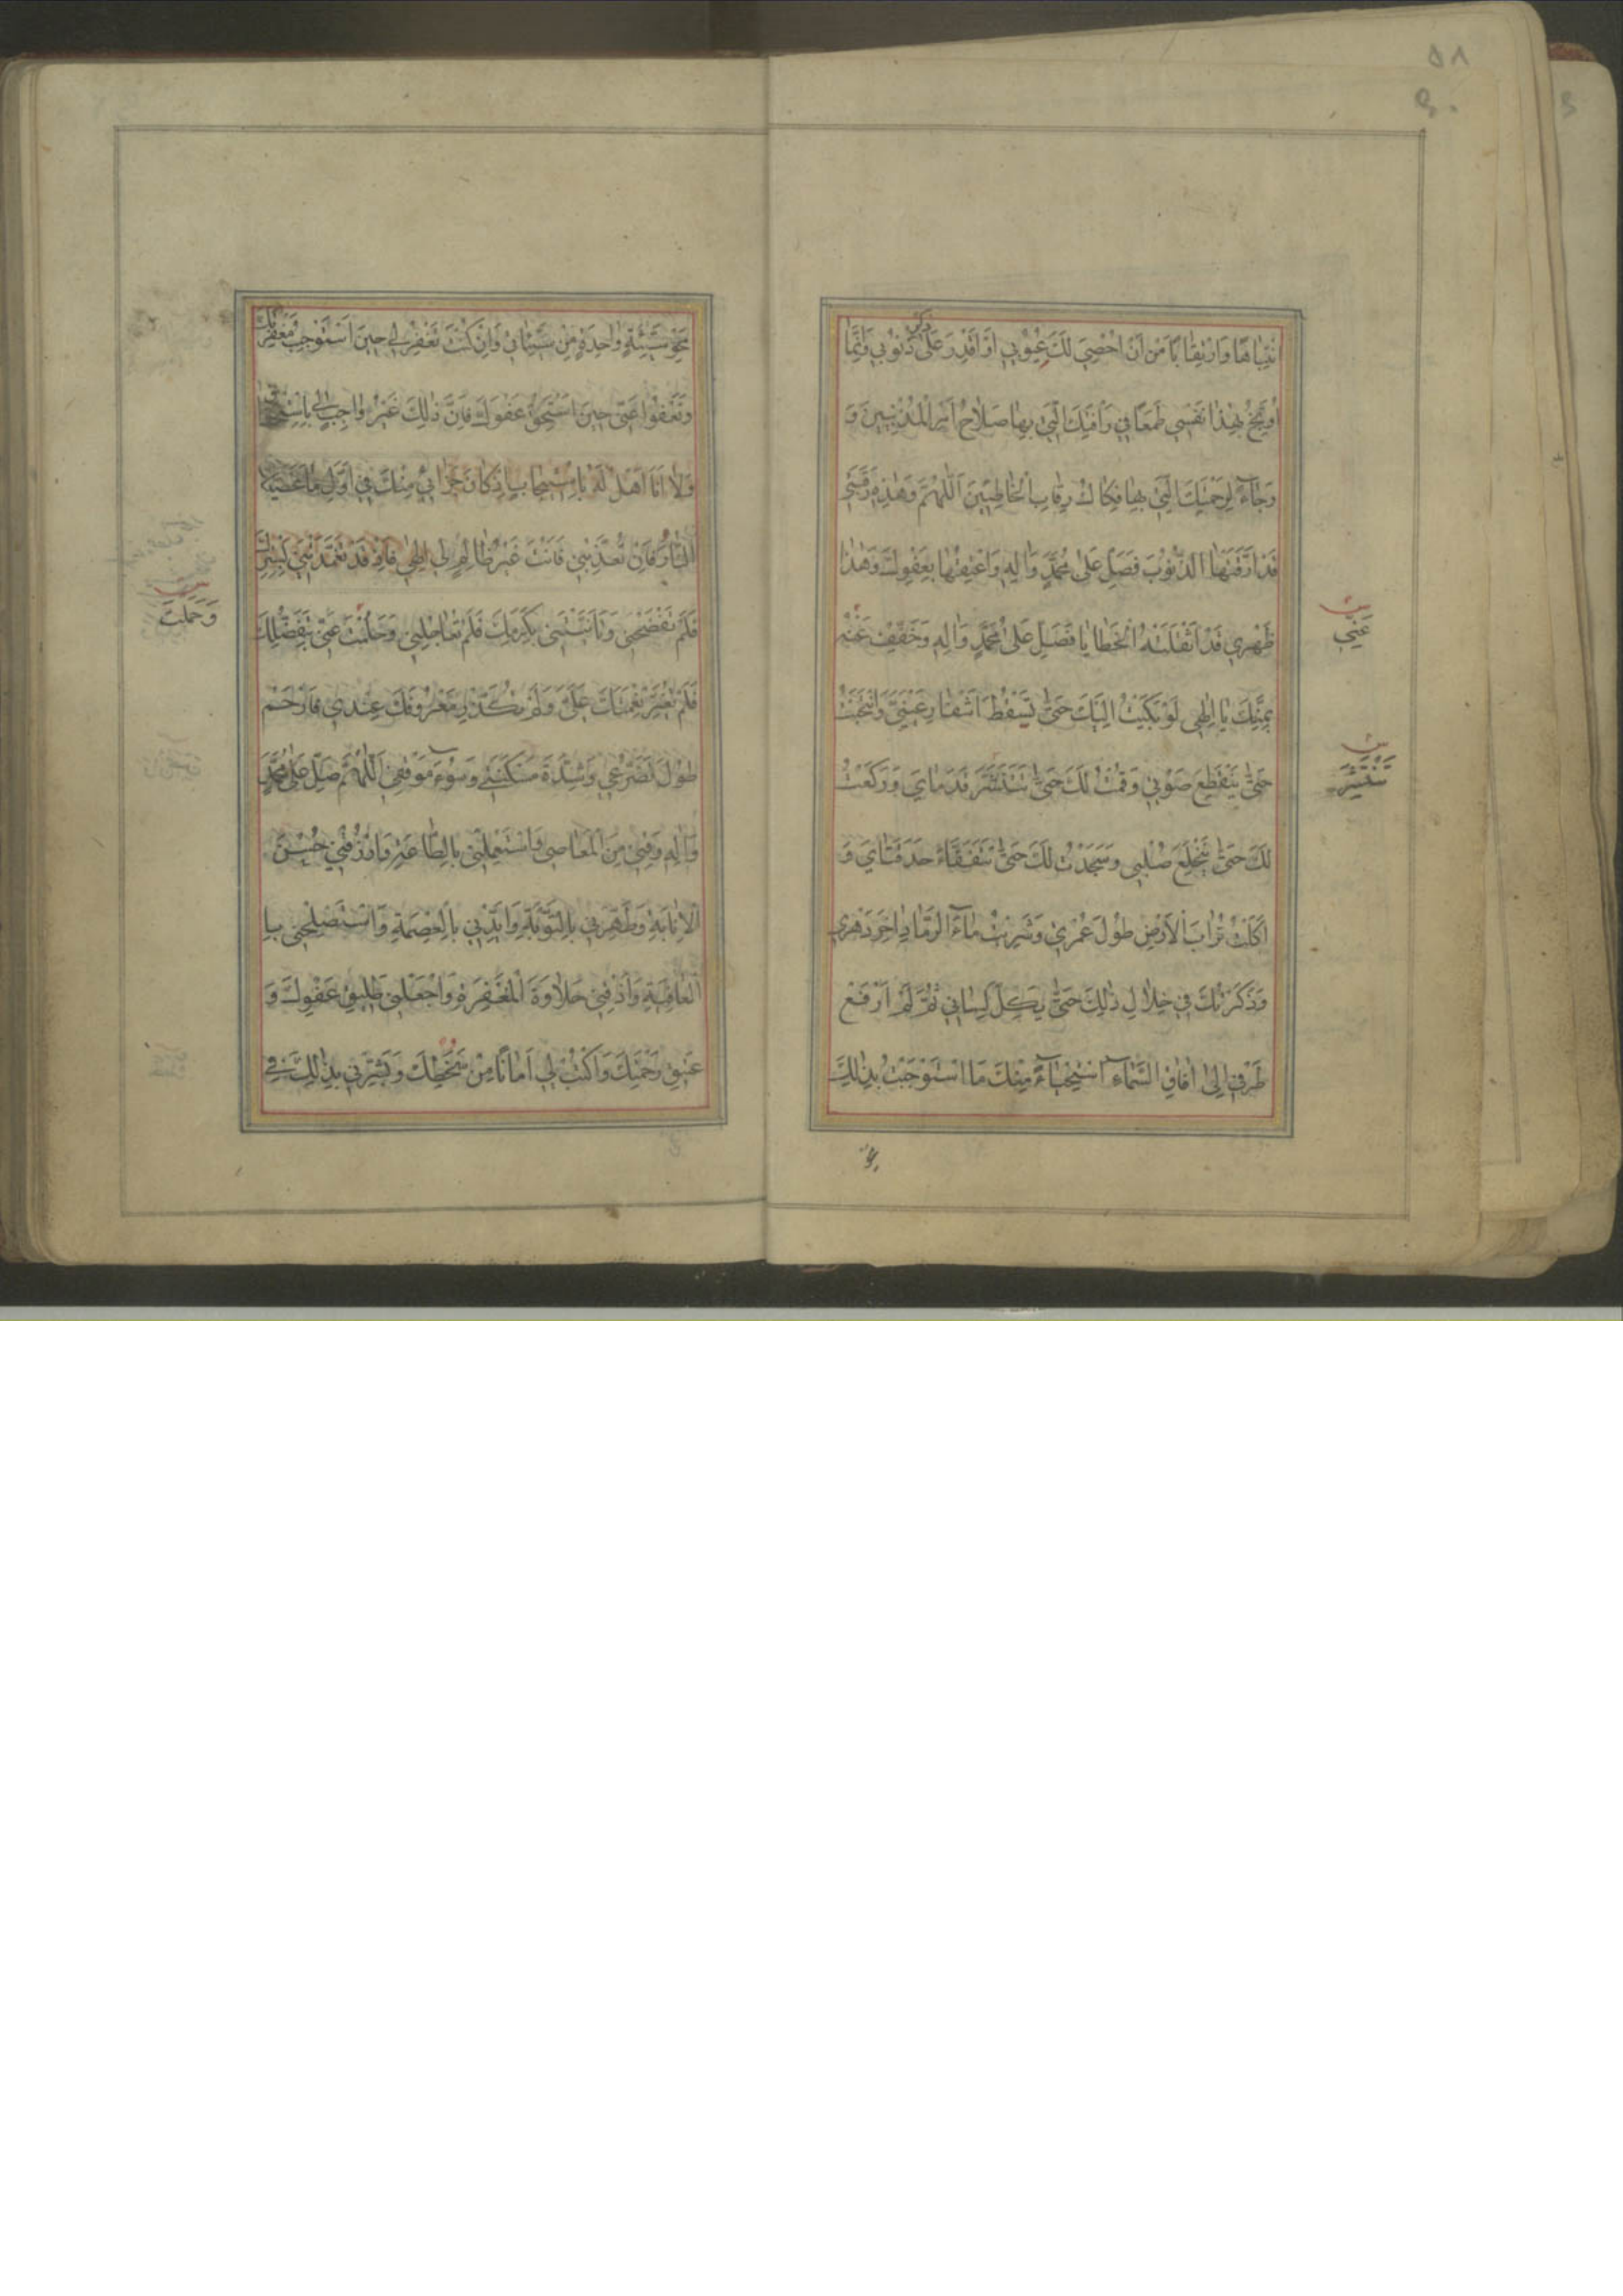 ۵۸
انْتِبَاهًا وَارْتِقَابًا مِنْ اَنْ اُحْصِيَ لَكَ عُيُوبِي اَوْ اَقْدِرَ عَلَى ذِكْرِ ذُنُوبِي وَاِنَّمَا
اُوَبِّخُ بِهٰذَا نَفْسِي طَمَعًا فِي رَأْفَتِكَ الَّتِي بِهَا صَلَاحُ اَمْرِ الْمُذْنِبِينَ وَ
رَجَاءً لِرَحْمَتِكَ الَّتِي بِهَا فِكَاكُ رِقَابِ الْخَاطِئِينَ اَللّٰهُمَّ وَهٰذِهِ رَقَبَتِي
قَدْ اَرَقَّتْهَا الذُّنُوبُ فَصَلِّ عَلٰى مُحَمَّدٍ وَاٰلِهِ وَاَعْتِقْهَا بِعَفْوِكَ وَهٰذَا
ظَهْرِي قَدْ اَثْقَلَتْهُ الْخَطَايَا فَصَلِّ عَلٰى مُحَمَّدٍ وَاٰلِهِ وَخَفِّفْ عَنْهُ
عَنِّي
بِمَنِّكَ يَا اِلٰهِي لَوْ بَكَيْتُ اِلَيْكَ حَتّٰى تَسْقُطَ اَشْفَارُ عَيْنَيَّ وَانْتَحَبْتُ
حَتّٰى يَنْقَطِعَ صَوْتِي وَقُمْتُ لَكَ حَتّٰى تَتَنَشَّرَ قَدَمَايَ وَرَكَعْتُ
لَكَ حَتّٰى يَنْخَلِعَ صُلْبِي وَسَجَدْتُ لَكَ حَتّٰى تَتَفَقَّأَ حَدَقَتَايَ وَ
اَكَلْتُ تُرَابَ الْاَرْضِ طُولَ عُمْرِي وَشَرِبْتُ مَاءَ الرَّمَادِ اٰخِرَ دَهْرِي
وَذَكَرْتُكَ فِي خِلَالِ ذٰلِكَ حَتّٰى يَكِلَّ لِسَانِي ثُمَّ لَمْ اَرْفَعْ
طَرْفِي اِلٰى اٰفَاقِ السَّمَاءِ اسْتِحْيَاءً مِنْكَ مَا اسْتَوْجَبْتُ بِذٰلِكَ
مَحْوَ سَيِّئَةٍ وَاحِدَةٍ مِنْ سَيِّئَاتِي وَاِنْ كُنْتَ تَغْفِرُ لِي حِينَ اَسْتَوْجِبُ مَغْفِرَتَكَ
وَتَعْفُو عَنِّي حِينَ اَسْتَحِقُّ عَفْوَكَ فَاِنَّ ذٰلِكَ غَيْرُ وَاجِبٍ لِي بِاسْتِحْقَاقٍ
وَلَا اَنَا اَهْلٌ لَهُ بِاسْتِيجَابٍ اِذْ كَانَ جَزَائِي مِنْكَ فِي اَوَّلِ مَا عَصَيْتُكَ
النَّارَ فَاِنْ تُعَذِّبْنِي فَاَنْتَ غَيْرُ ظَالِمٍ لِي اِلٰهِي فَاِذْ قَدْ تَغَمَّدْتَنِي بِسِتْرِكَ
فَلَمْ تَفْضَحْنِي وَتَاَنَّيْتَنِي بِكَرَمِكَ فَلَمْ تُعَاجِلْنِي وَحَلُمْتَ عَنِّي بِتَفَضُّلِكَ
وَحَمَلْتَ
فَلَمْ تُغَيِّرْ نِعْمَتَكَ عَلَيَّ وَلَمْ تُكَدِّرْ مَعْرُوفَكَ عِنْدِي فَارْحَمْ
طُولَ تَضَرُّعِي وَشِدَّةَ مَسْكَنَتِي وَسُوءَ مَوْقِفِي اَللّٰهُمَّ صَلِّ عَلٰى مُحَمَّدٍ
وَاٰلِهِ وَقِنِي مِنَ الْمَعَاصِي وَاسْتَعْمِلْنِي بِالطَّاعَةِ وَارْزُقْنِي حُسْنَ
الْاِنَابَةِ وَطَهِّرْنِي بِالتَّوْبَةِ وَاَيِّدْنِي بِالْعِصْمَةِ وَاسْتَصْلِحْنِي بِا
لْعَافِيَةِ وَاَذِقْنِي حَلَاوَةَ الْمَغْفِرَةِ وَاجْعَلْنِي طَلِيقَ عَفْوِكَ وَ
عَتِيقَ رَحْمَتِكَ وَاكْتُبْ لِي اَمَانًا مِنْ سَخَطِكَ وَبَشِّرْنِي بِذٰلِكَ فِي